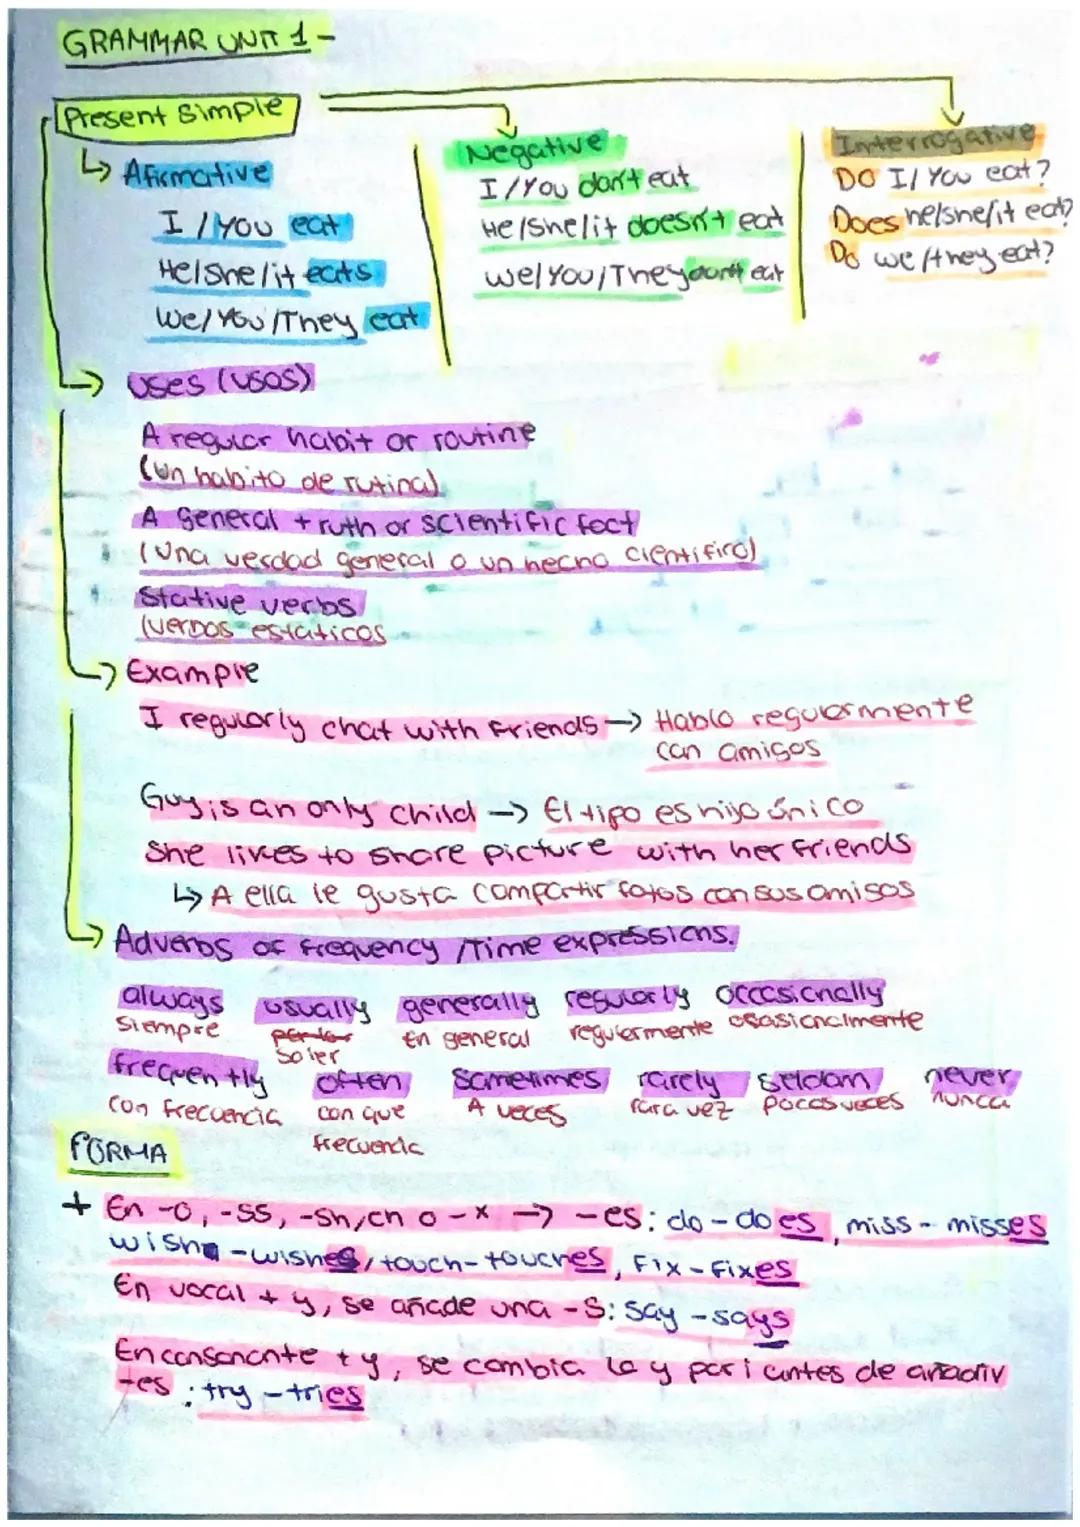 GRAMMAR UNIT 1 -
Present Simple
↳ Afirmative
I / You eat
He/She/it eats
We/You/They eat
Negative
I/You don't eat
He/She/it doesn't eat
We/You/They don't eat
Interrogative
DO I/You eat?
Does he/she/it eat?
Do we/they eat?
→ Uses (usos)
A regular habit or routine
(un habito de rutina)
A general truth or scientific fact
(Una verdad general o un hecho cientifico)
Stative verbs
(verbos estaticos
→ Example
I regularly chat with friends → Hablo regularmente
con amigos
Guy is an only child → El tipo es hijo único
She likes to share picture with her friends
↳ A ella le gusta compartir fotos con sus amigos
→ Adverbs of frequency /Time expressions.
always usually generally regularly occasionally
siempre soler en general regularmente ocasionalmente
frequently often sometimes rarely seldom never
con frecuencia con que frecuencia A veces rara vez pocas veces nunca
FORMA
+ En -o, -ss, -sh/ch o -x → -es: do - does, miss - misses
wish - wishes, touch - touches, Fix - Fixes
En vocal + y, se añade una -s: say - says
En consonante + y, se cambia la y por i antes de añadir
-es : try - tries